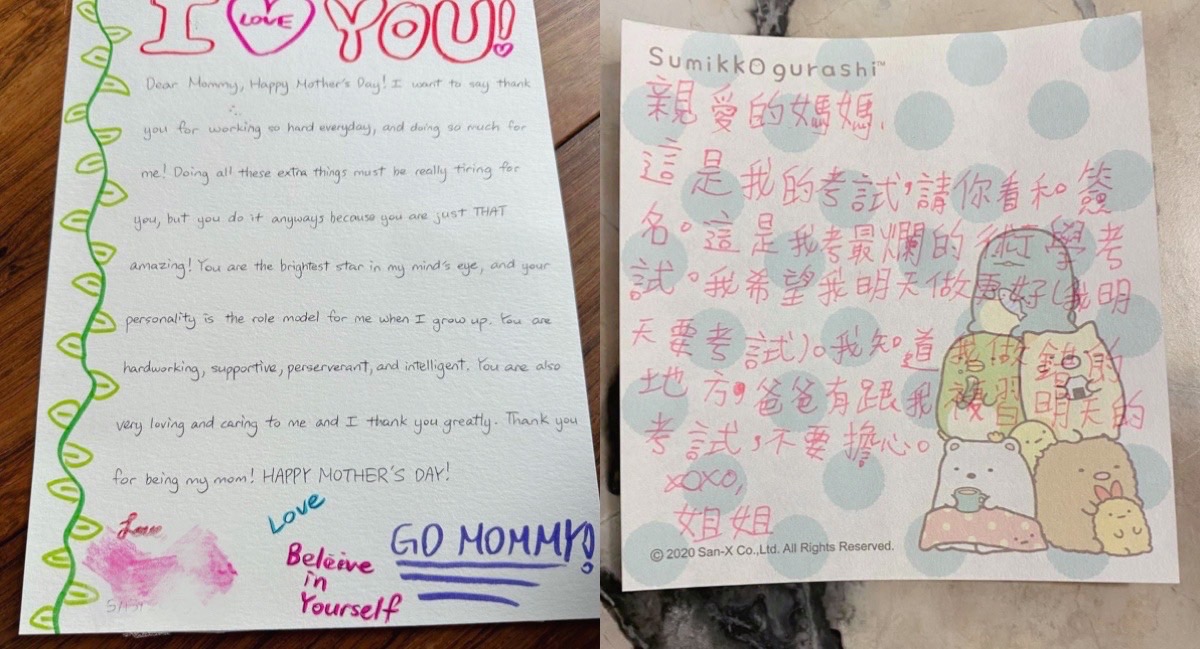 I LOVE YOU!
Dear Mommy, Happy Mother's Day! I want to say thank
you for working so hard everyday, and doing so much for
me! Doing all these extra things must be really tiring for
you, but you do it anyways because you are just THAT
amazing! You are the brightest star in my mind's eye, and your
personality is the role model for me when I grow up. You are
hardworking, supportive, perserverant, and intelligent. You are also
very loving and caring to me and I thank you greatly. Thank you
for being my mom! HAPPY MOTHER'S DAY!
Love
Love
Beleive
in
Yourself
GO MOMMY!
Sumikkogurashi™
親愛的媽媽,
這是我的考試，請你看和簽
名。這是我考最爛的術學考
試。我希望我明天做更好(我明
天要考試)。我知道我做錯的
地方，爸爸有跟我複習明天的
考試，不要擔心。
xoxo,
姐姐
© 2020 San-X Co.,Ltd. All Rights Reserved.